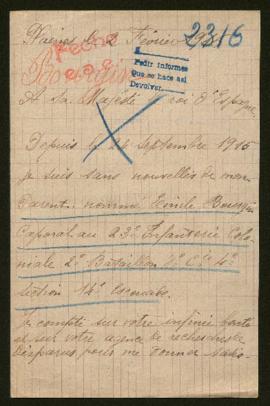 2316
Février
Fecho
Pedir informes
que se hace así
Devolver.
A Sa Majesté roi d'Espagne
Depuis le septembre 1915
je suis sans nouvelles de mon
Parent nommé Emile
Caporal au 23e Infanterie Colo-
niale 2e Bataillon 4e
section 14e Escouade.
Je compte sur votre infinie bonté
et sur votre agence de recherches de
disparus, pour me donner